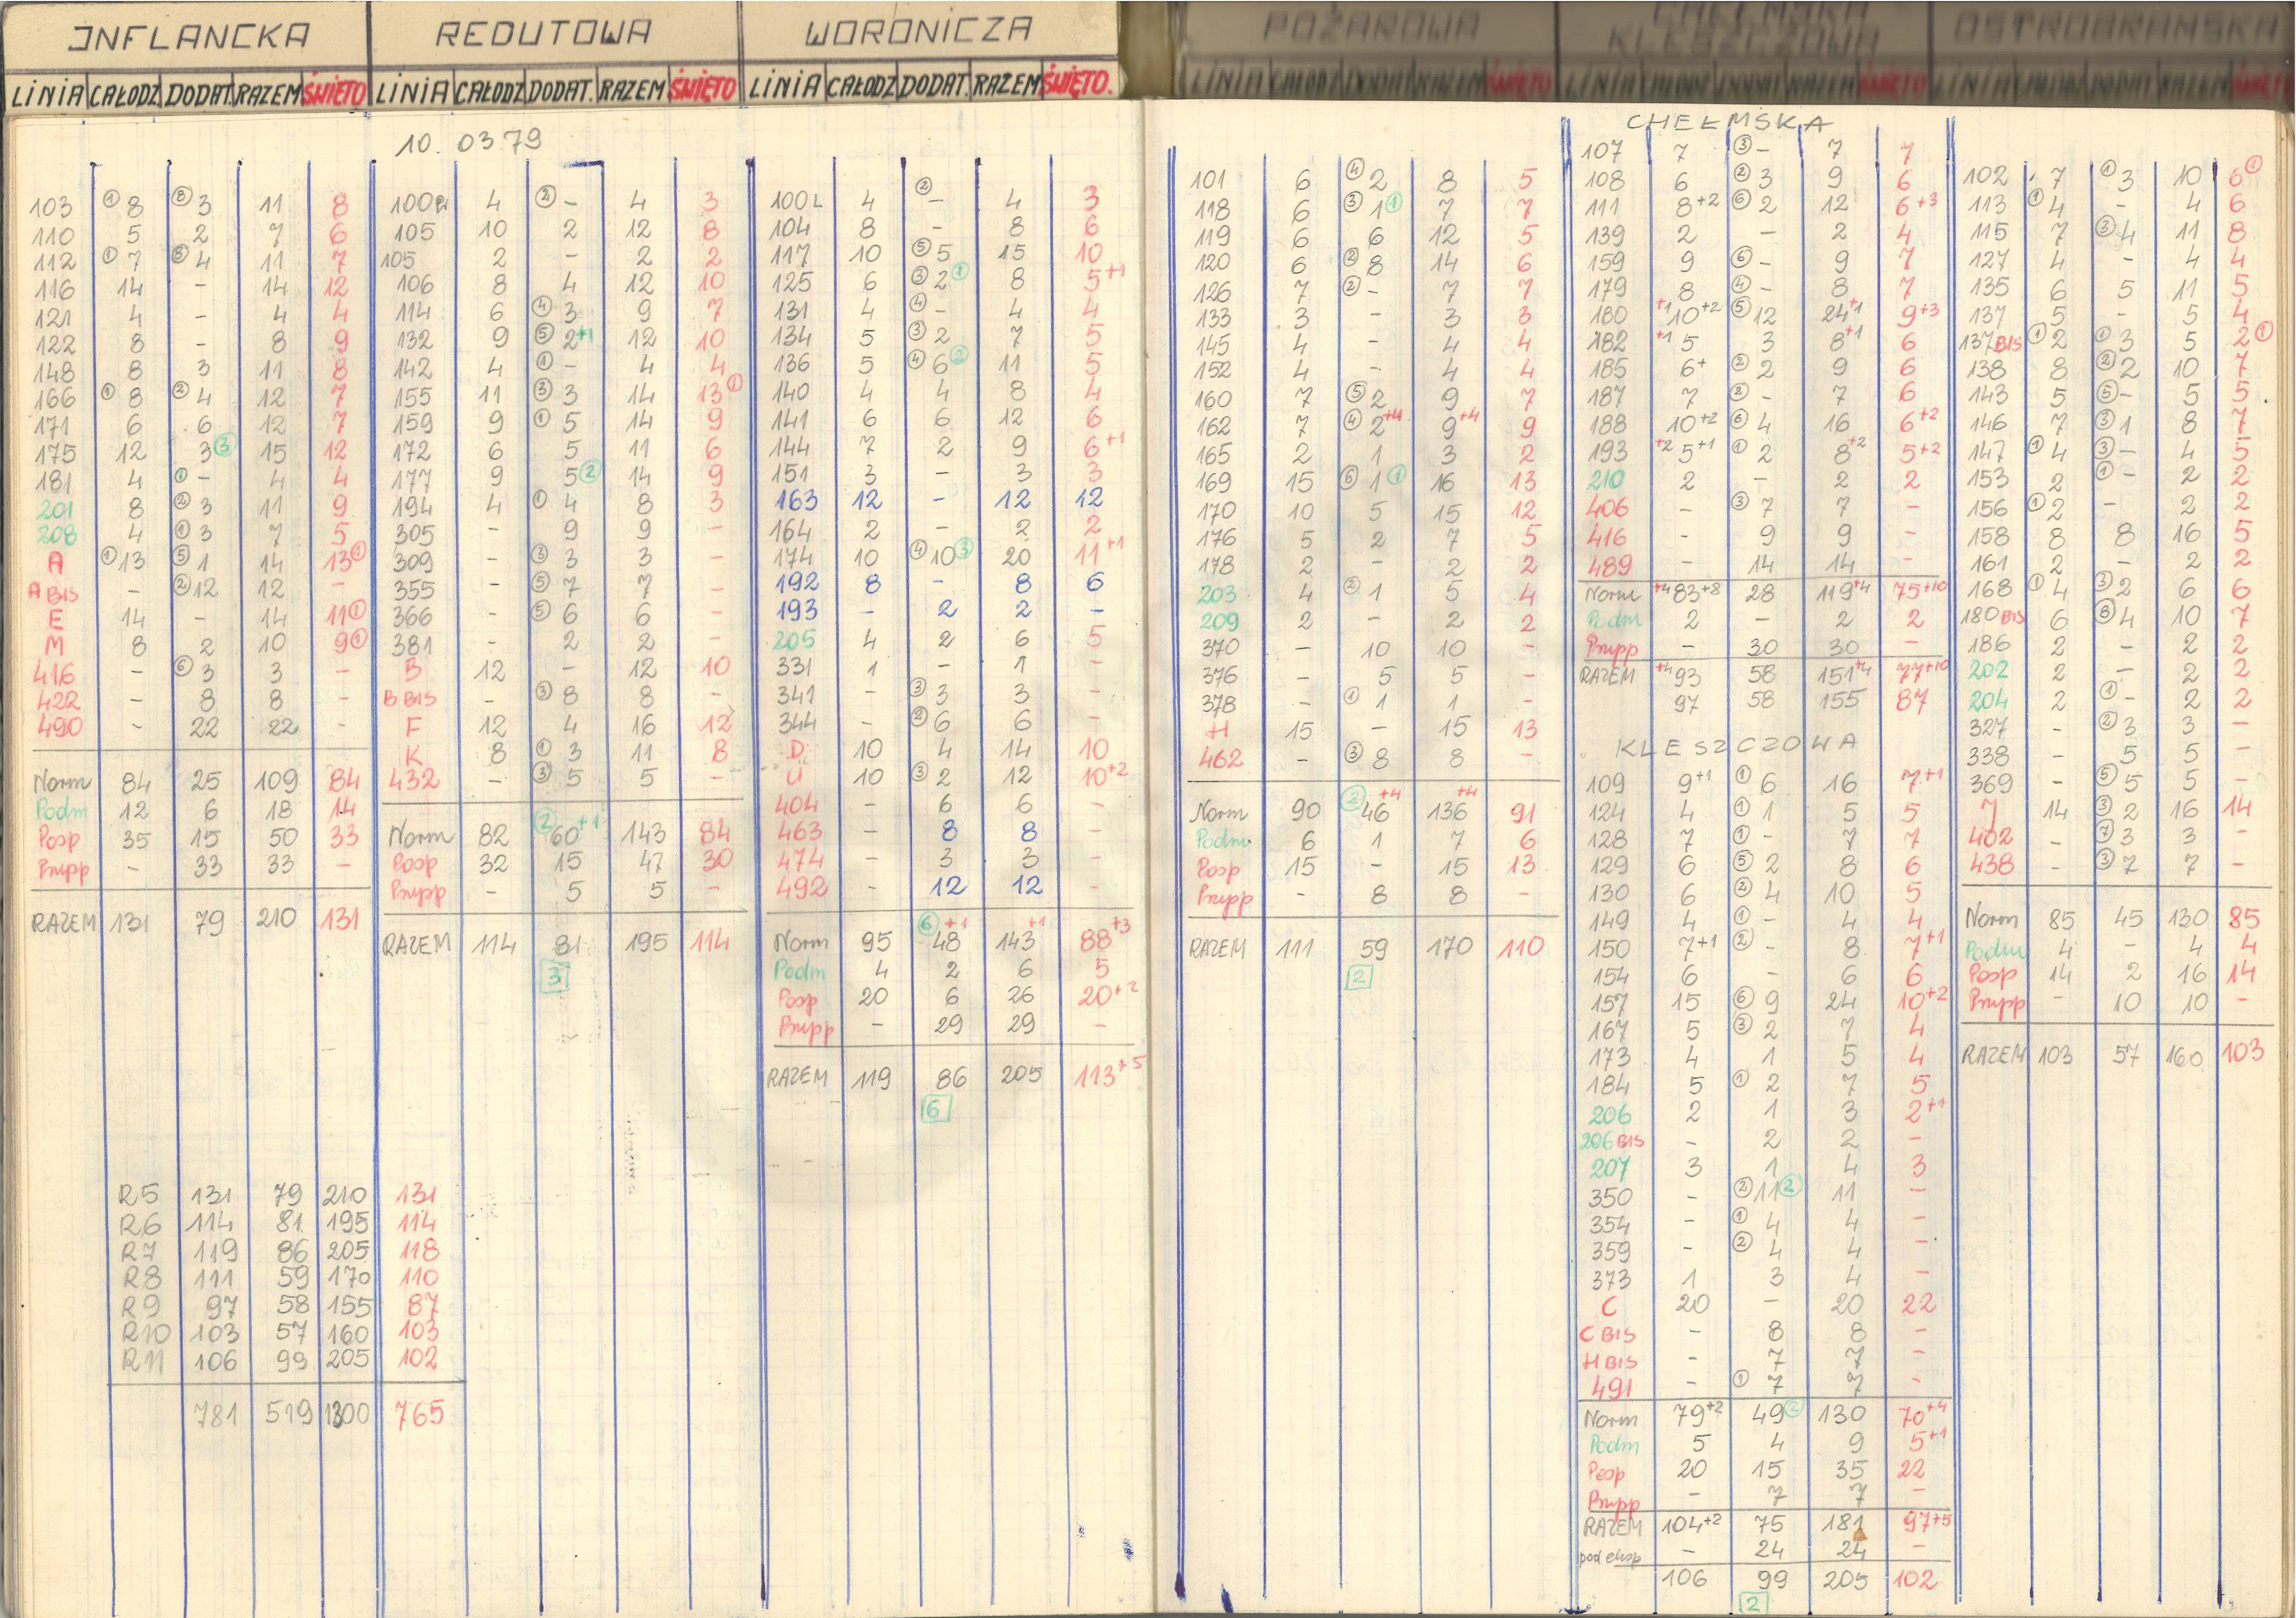 INFLANCKA
LINIA CAŁODZ DODAT. RAZEM ŚWIĘTO
10.03.79
103 ① 8 ⑧ 3 11 8
110 5 2 7 6
112 ① 7 ⑥ 4 11 7
116 14 - 14 12
121 4 - 4 4
122 8 - 8 9
148 8 3 11 8
166 ① 8 ② 4 12 7
171 6 6 12 7
175 12 3 ③ 15 12
181 4 ① - 4 4
201 8 ② 3 11 9
208 4 ① 3 7 5
A ① 13 ⑤ 1 14 13 ①
A BIS - ② 12 12 -
E 14 - 14 11 ①
M 8 2 10 9 ①
416 - ⑥ 3 3 -
422 - 8 8 -
490 - 22 22 -
Norm 84 25 109 84
Podm 12 6 18 14
Posp 35 15 50 33
Pnpp - 33 33 -
RAZEM 131 79 210 131
R5 131 79 210 131
R6 114 81 195 114
R7 119 86 205 118
R8 111 59 170 110
R9 97 58 155 87
R10 103 57 160 103
R11 106 99 205 102
781 519 1300 765
REDUTOWA
LINIA CAŁODZ DODAT. RAZEM ŚWIĘTO
100 4 ② - 4 3
105 10 2 12 8
105 2 - 2 2
106 8 4 12 10
114 6 ④ 3 9 7
132 9 ⑤ 2+1 12 10
142 4 ① - 4 4
155 11 ③ 3 14 13 ①
159 9 ① 5 14 9
172 6 5 11 6
177 9 5 ② 14 9
194 4 ① 4 8 3
305 - 9 9 -
309 - ③ 3 3 -
355 - ⑤ 7 7 -
366 - ⑤ 6 6 -
381 - 2 2 -
B 12 - 12 10
B BIS - ③ 8 8 -
F 12 4 16 12
K 8 ① 3 11 8
432 - ③ 5 5 -
Norm 82 ② 60+1 143 84
Posp 32 15 47 30
Pnpp - 5 5 -
RAZEM 114 81 195 114
3
WORONICZA
LINIA CAŁODZ DODAT. RAZEM ŚWIĘTO.
100L 4 ② - 4 3
104 8 - 8 6
117 10 ⑤ 5 15 10
125 6 ③ 2 ① 8 5+1
131 4 ④ - 4 4
134 5 ③ 2 7 5
136 5 ④ 6 ② 11 5
140 4 4 8 4
141 6 6 12 6
144 7 2 9 6+1
151 3 - 3 3
163 12 - 12 12
164 2 - 2 2
174 10 ④ 10 ③ 20 11+1
192 8 - 8 6
193 - 2 2 -
205 4 2 6 5
331 1 - 1 -
341 - ③ 3 3 -
344 - ② 6 6 -
D 10 4 14 10
U 10 ③ 2 12 10+2
404 - 6 6 -
463 - 8 8 -
474 - 3 3 -
492 - 12 12 -
Norm 95 ⑥ 48+1 143+1 88+3
Podm 4 2 6 5
Posp 20 6 26 20+2
Pnpp - 29 29 -
RAZEM 119 86 205 113+5
6
POŻAROWA
LINIA CAŁODZ DODAT. RAZEM ŚWIĘTO
101 6 ④ 2 8 5
118 6 ③ 1 ① 7 7
119 6 6 12 5
120 6 ② 8 14 6
126 7 ② - 7 7
133 3 - 3 3
145 4 - 4 4
152 4 - 4 4
160 7 ⑤ 2 9 7
162 7 ④ 2+4 9+4 9
165 2 1 3 2
169 15 ⑥ 1 ① 16 13
170 10 5 15 12
176 5 2 7 5
178 2 - 2 2
203 4 ② 1 5 4
209 2 - 2 2
370 - 10 10 -
376 - 5 5 -
378 - ① 1 1 -
H 15 - 15 13
462 - ③ 8 8 -
Norm 90 ② 46+4 136+4 91
Podm. 6 1 7 6
Posp 15 - 15 13
Pnpp - 8 8 -
RAZEM 111 59 170 110
2
CHEŁMSKA
KLESZCZOWA
LINIA CAŁODZ DODAT. RAZEM ŚWIĘTO
CHEŁMSKA
107 7 ③ - 7 7
108 6 ② 3 9 6
111 8+2 ⑥ 2 12 6+3
139 2 - 2 4
159 9 ⑥ - 9 7
179 8 ④ - 8 7
180 +1 10+2 ⑤ 12 24+1 9+3
182 +1 5 3 8+1 6
185 6+ ② 2 9 6
187 7 ② - 7 6
188 10+2 ⑥ 4 16 6+2
193 +2 5+1 ① 2 8+2 5+2
210 2 - 2 2
406 - ③ 7 7 -
416 - 9 9 -
489 - 14 14 -
Norm +4 83+8 28 119+4 75+10
Podm 2 - 2 2
Pnpp - 30 30 -
RAZEM +4 93 58 151+4 77+10
97 58 155 87
KLESZCZOWA
109 9+1 ① 6 16 7+1
124 4 ① 1 5 5
128 7 ① - 7 7
129 6 ⑤ 2 8 6
130 6 ② 4 10 5
149 4 ① - 4 4
150 7+1 ② - 8 7+1
154 6 - 6 6
157 15 ⑥ 9 24 10+2
167 5 ③ 2 7 4
173 4 1 5 4
184 5 ① 2 7 5
206 2 1 3 2+1
206 BIS - 2 2 -
207 3 1 4 3
350 - ② 11 ② 11 -
354 - ① 4 4 -
359 - ② 4 4 -
373 1 3 4 -
C 20 - 20 22
C BIS - 8 8 -
H BIS - 7 7 -
491 - ① 7 7 -
Norm 79+2 49 ② 130 70+4
Podm 5 4 9 5+1
Posp 20 15 35 22
Pnpp - 7 7 -
RAZEM 104+2 75 181 97+5
pod eksp - 24 24 -
106 99 205 102
2
OSTROBRAMSKA
LINIA CAŁODZ DODAT. RAZEM ŚWIĘTO
102 7 ① 3 10 6 ①
113 ① 4 - 4 6
115 7 ③ 4 11 8
127 4 - 4 4
135 6 5 11 5
137 5 - 5 4
137 BIS ① 2 ① 3 5 2 ①
138 8 ② 2 10 7
143 5 ⑤ - 5 5
146 7 ③ 1 8 7
147 ① 4 ③ - 4 5
153 2 ① - 2 2
156 ① 2 - 2 2
158 8 8 16 5
161 2 - 2 2
168 ① 4 ③ 2 6 6
180 BIS 6 ⑧ 4 10 7
186 2 - 2 2
202 2 - 2 2
204 2 ① - 2 2
327 - ② 3 3 -
338 - 5 5 -
369 - ⑤ 5 5 -
14 ③ 2 16 14
402 - ⑦ 3 3 -
438 - ③ 7 7 -
Norm 85 45 130 85
Podm 4 - 4 4
Posp 14 2 16 14
Pnpp - 10 10 -
RAZEM 103 57 160 103